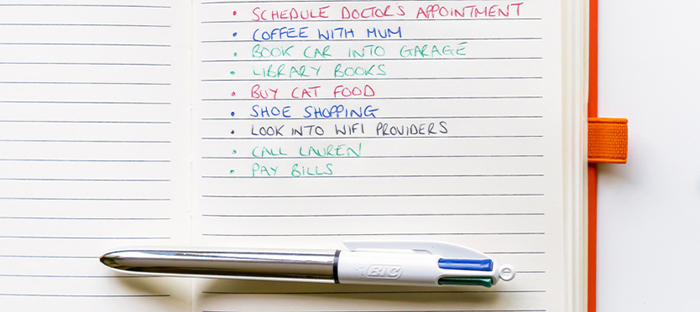 • SCHEDULE DOCTOR'S APPOINTMENT
• COFFEE WITH MUM
• BOOK CAR INTO GARAGE
• LIBRARY BOOKS
• BUY CAT FOOD
• SHOE SHOPPING
• LOOK INTO WIFI PROVIDERS
• CALL LAUREN
• PAY BILLS
BIC